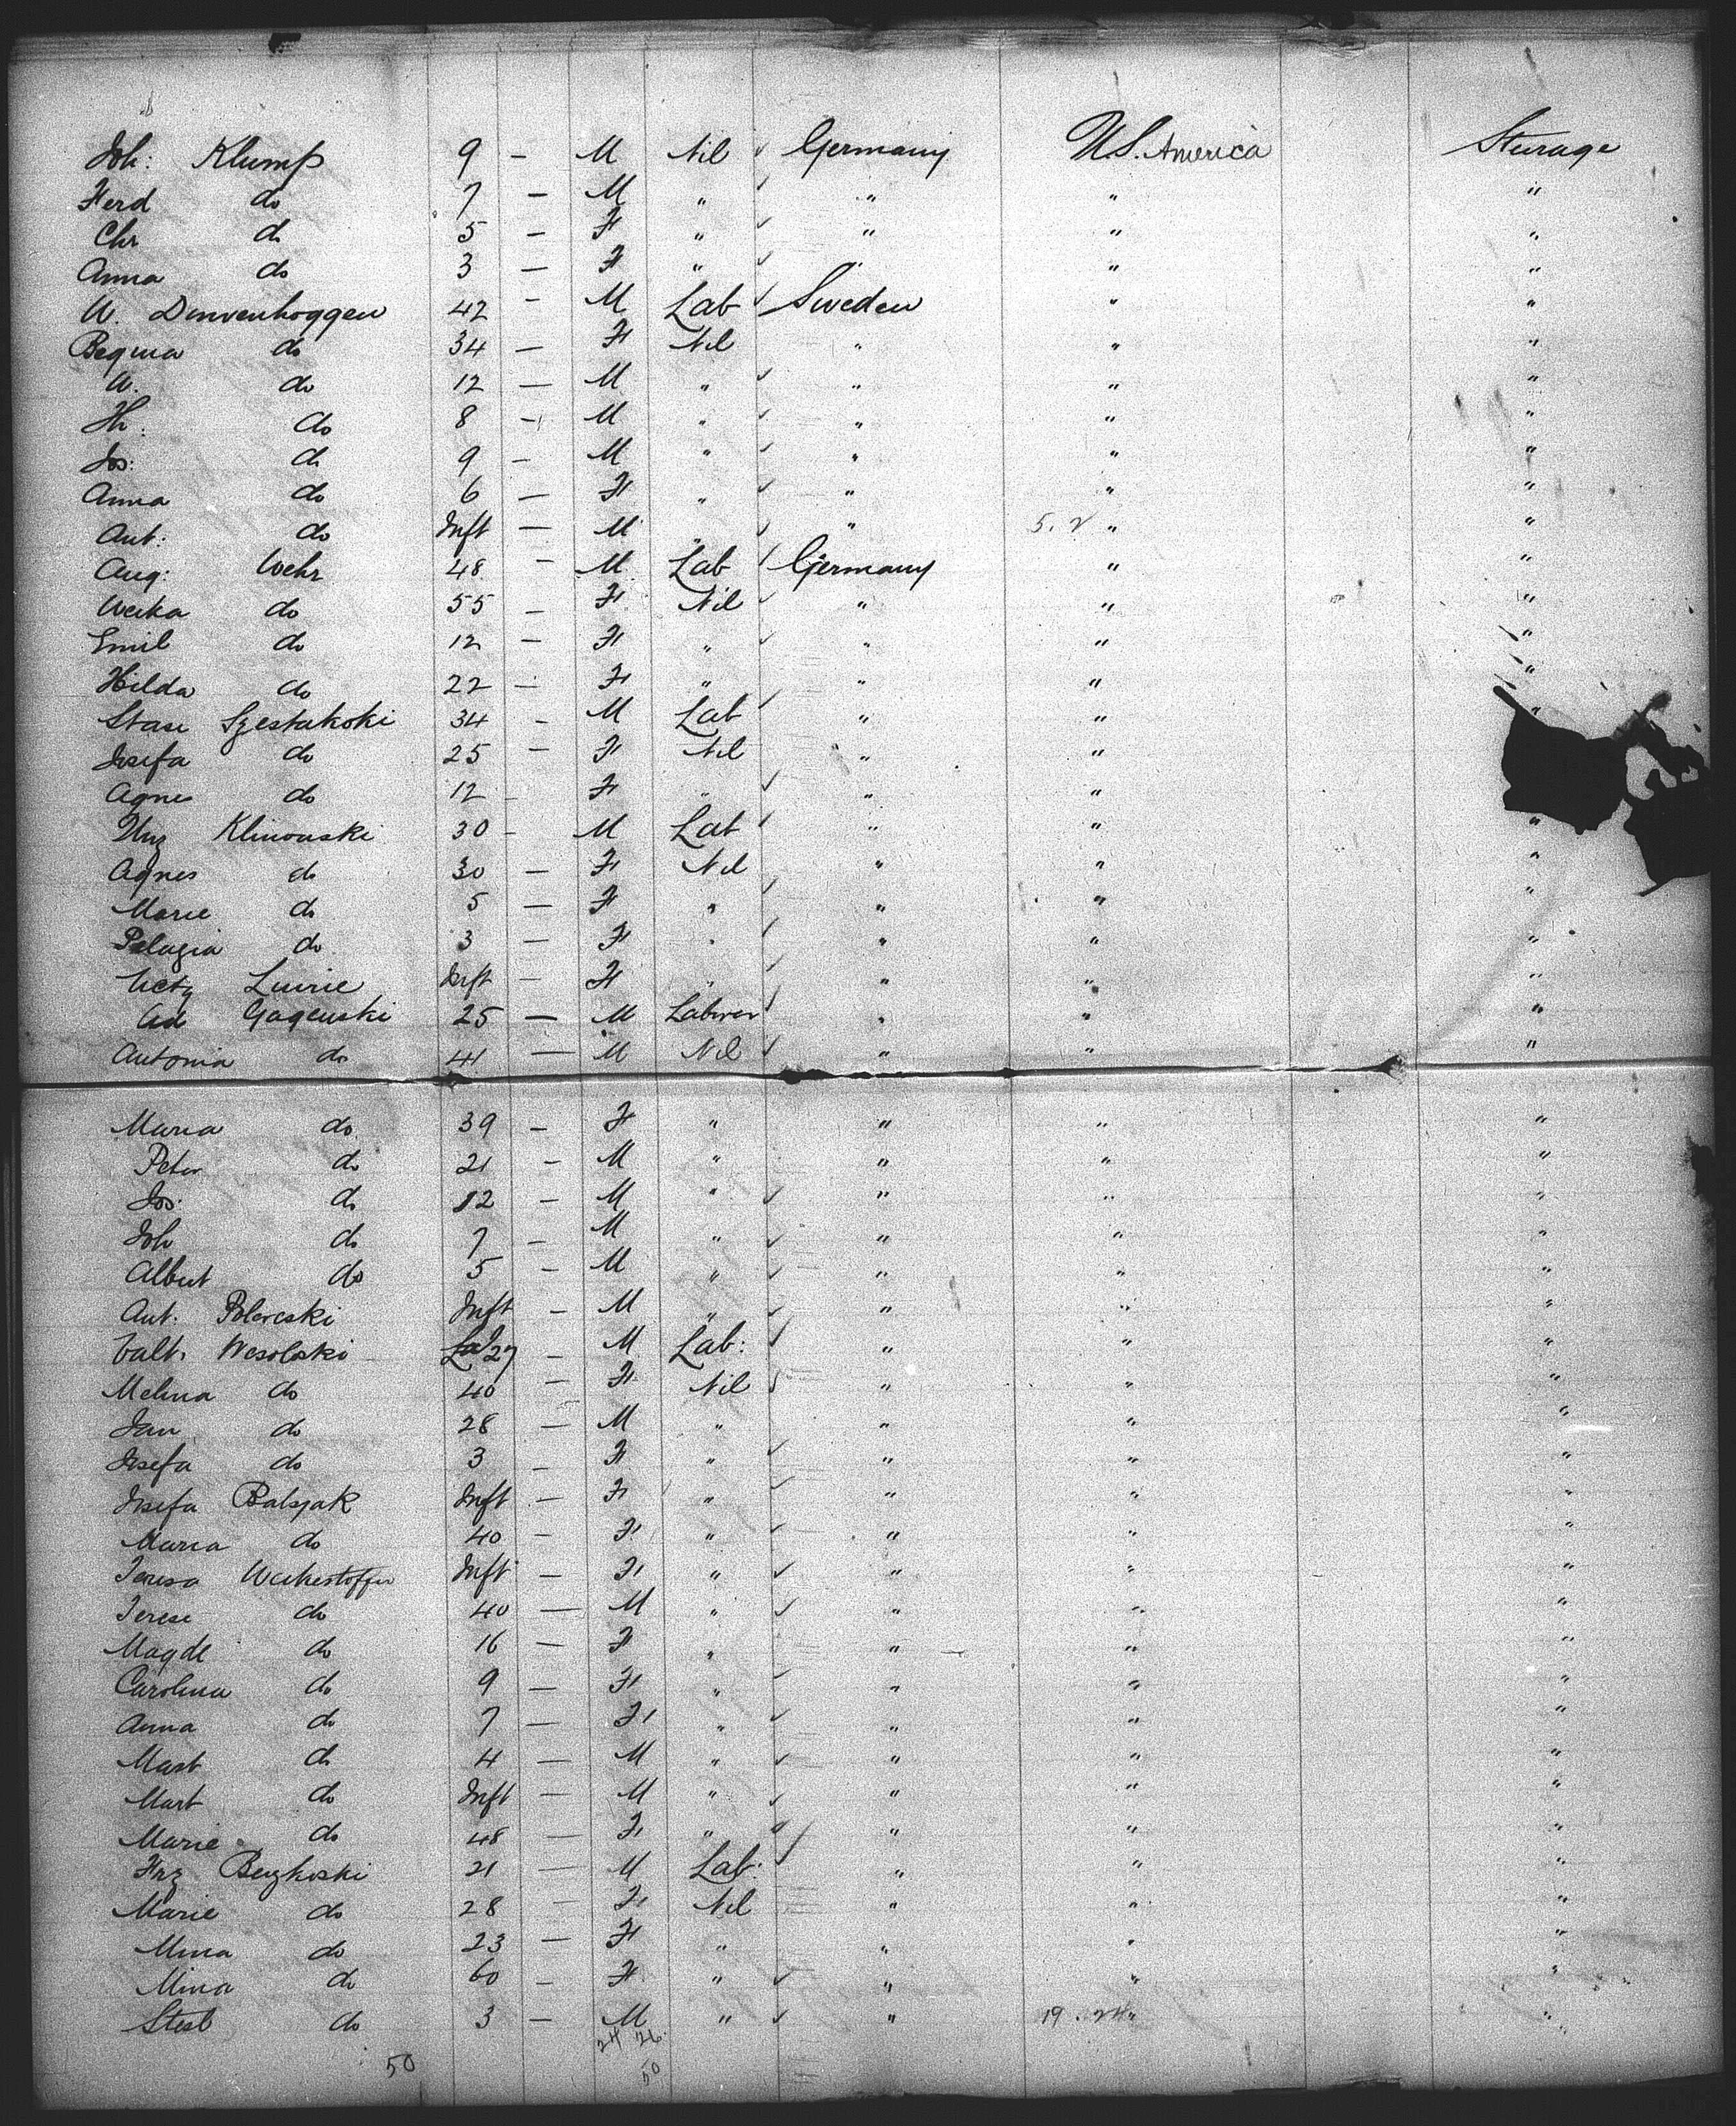 Joh: Klump 9 – M Nil ✓ Germany U.S. America Sturage
Ferd do 7 – M " ✓ " " "
Chr do 5 – F " ✓ " " "
Anna do 3 – F " ✓ " "
W. Dunvenhoggen 42 – M Lab ✓ Sweden " "
Begma do 34 – F Nil " " "
W. do 12 – M " ✓ " " "
H: do 8 – M " ✓ " " "
Jos: do 9 – M " ✓ " " "
Anna do 6 – F " ✓ " " "
Ant: do Inft – M " ✓ " 5. 2 " "
Aug: Wehr 48 – M Lab ✓ Germany " "
Weika do 55 – F Nil ✓ " " "
Emil do 12 – F " ✓ " " "
Hilda do 22 – F " " " "
Stase Szestakoki 34 – M Lab ✓ " " "
Josefa do 25 – F Nil " "
Agnes do 12 – F " ✓ " "
Klinowski 30 – M Lab ✓ " " "
Agnes do 30 – F Nil " " "
Marie do 5 – F " ✓ " " "
Pelagia do 3 – F " ✓ " " "
Luirie Inft – F " ✓ " " "
Ad Gagenski 25 – M Laborer ✓ " " "
Antonia do 41 – M Nil ✓ " " "
Maria do 39 – F " " " "
Peter do 21 – M " " " "
Jos: do 12 – M " ✓ " " "
Joh do 7 – M " ✓ " " "
Albert do 5 – M " ✓ " " "
Ant: Polereski Inft – M " ✓ " " "
Valt: Wesolski 27 – M Lab: ✓ " " "
Melina do 40 – F Nil ✓ " " "
Jan do 28 – M " " " "
Josefa do 3 – F " ✓ " " "
Josefa Balszak Inft – F " ✓ " " "
Maria do 40 – F " ✓ " " "
Teresa Inft – F " ✓ " " "
Terese do 40 – M " ✓ " " "
Magdl do 16 – F " " " "
Carolina do 9 – F " ✓ " " "
Anna do 7 – F " ✓ " " "
Mart do 4 – M " ✓ " " "
Mart do Inft – M " ✓ " " "
Marie do 48 – F " " " "
Frz Beuzkoski 21 – M Lab: ✓ " " "
Marie do 28 – F Nil " " "
Mina do 23 – F " " " "
Mina do 60 – F " ✓ " " "
do 3 – M " ✓ " 19. 24 " "
24 26
50 50